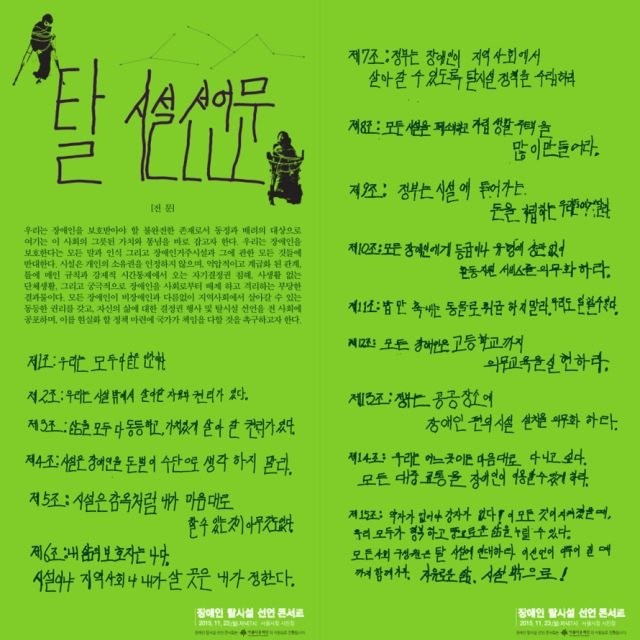 탈시설선언문
[전 문]
우리는 장애인을 보호받아야 할 불완전한 존재로서 동정과 배려의 대상으로
여기는 이 사회의 그릇된 가치와 통념을 바로 잡고자 한다. 우리는 장애인을
보호한다는 모든 말과 인식 그리고 장애인거주시설과 그에 관한 모든 것들에
반대한다. 시설은 개인의 소유권을 인정하지 않으며, 억압적이고 계급화 된 관계,
틀에 매인 규칙과 강제적 시간통제에서 오는 자기결정권 침해, 사생활 없는
단체생활, 그리고 궁극적으로 장애인을 사회로부터 배제 하고 격리하는 부당한
결과물이다. 모든 장애인이 비장애인과 다름없이 지역사회에서 살아갈 수 있는
동등한 권리를 갖고, 자신의 삶에 대한 결정권 행사 및 탈시설 선언을 전 사회에
공포하며, 이를 현실화 할 정책 마련에 국가가 책임을 다할 것을 촉구하고자 한다.
제1조: 우리는 모두
제2조: 우리는 시설 밖에서 살아갈 자유와 권리가 있다.
제3조: 삶은 모두 다 동등하고, 가치있게 살아 갈 권리가 있다.
제4조: 시설은 장애인을 돈벌이 수단으로 생각 하지 말라.
제5조: 시설은 감옥처럼 내가 마음대로
할 수 있는 것이 아무것도 없다.
제6조: 내 삶의 보호자는 나다.
시설이나 지역사회나 내가 살 곳은 내가 정한다.
제7조: 정부는 장애인이 지역사회에서
살아갈 수 있도록 탈시설 정책을 수립하라
제8조: 모든 시설을 폐쇄하고 자립 생활 주택을
많이 만들어라.
제9조: 정부는 시설에 들어가는
돈을
제10조: 모든 장애인에게 등급이나 유형에 상관 없이
활동지원 서비스를 의무화 하라.
제11조: 밥만 축내는 동물로 취급 하지말라.
제12조: 모든 장애인은 고등학교까지
의무교육을 실현하라.
제13조: 정부는 공공장소에
장애인 편의시설 설치를 의무화 하라.
제14조: 우리는 어느곳이든 마음대로 다니고 싶다.
모든 대중교통을 장애인이 이용할수있게 하라.
제15조: 약자가 없어야 강자가 없다! 이 모든 것이 지켜졌을 때,
우리 모두가 행복하고 풍요로운 삶을 누릴 수 있다.
모든 사회 구성원은 탈 시설에 연대하라. 이 선언이 이루어 질 때
까지 함께 하자. 자유로운 삶, 시설 밖으로!
장애인 탈시설 선언 콘서트
2015. 11. 23.(월) 저녁7시 서울시청 시민청
장애인 탈시설 선언 콘서트
2015. 11. 23.(월) 저녁7시 서울시청 시민청